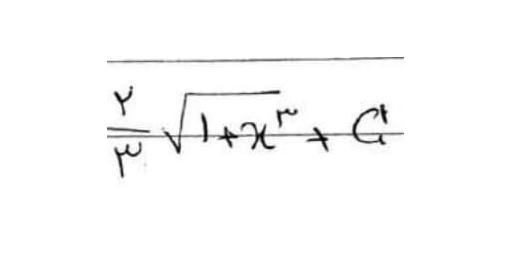 ۲/۳ √(1+x^۳) + C